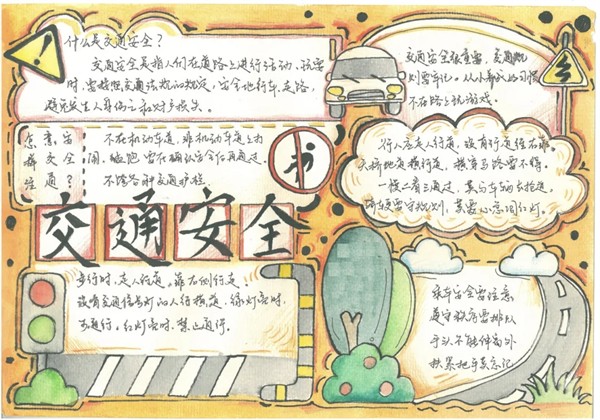 什么是交通安全?
交通安全是指人们在道路上进行活动、玩耍
时,要按照交通法规的规定,安全地行车、走路,
避免发生人身伤亡和财产损失。
怎样注
意交通
安全?
不在机动车道、非机动车道上打
闹、猛跑,要在确认安全后再通过,
不跨各种交通护栏。
交通安全
步行时,走人行道。靠右侧行走。
没有交通信号灯的人行横道,绿灯亮时,
方通行。红灯亮时,禁止通行。
交通安全很重要,交通规
则要牢记。从小养成好习惯
不在路上玩游戏。
行人应走人行道,没有行道往右靠
天桥地道横行道,横穿马路要不得。
一慢二看三通过,莫与车辆去抢道,
骑车更要守规则,莫要心急闯红灯。
乘车安全要注意
遵守秩序要排队
手头不能伸窗外
扶紧把手莫忘记